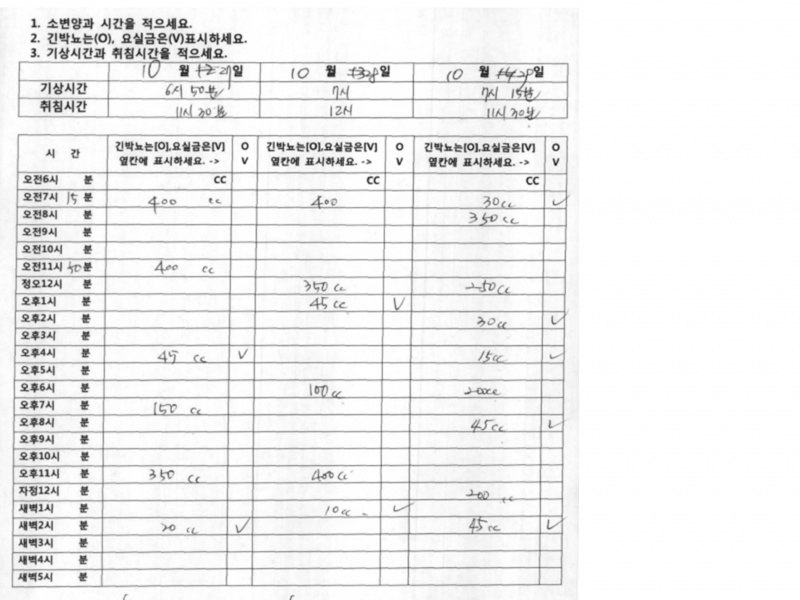 1. 소변양과 시간을 적으세요.
2. 긴박뇨는(O), 요실금은(V)표시하세요.
3. 기상시간과 취침시간을 적으세요.
10 월 27일 10 월 28일 10 월 29일
기상시간 6시 50분 7시 7시 15분
취침시간 11시 30분 12시 11시 30분
시 간 긴박뇨는[O],요실금은[V] 옆칸에 표시하세요. -> O V 긴박뇨는[O],요실금은[V] 옆칸에 표시하세요. -> O V 긴박뇨는[O],요실금은[V] 옆칸에 표시하세요. -> O V
오전6시 분 CC CC CC
오전7시 15분 400 cc 400 30cc V
오전8시 분 350cc
오전9시 분
오전10시 분
오전11시 50분 400 cc
정오12시 분 350cc 250cc
오후1시 분 45cc V
오후2시 분 30cc V
오후3시 분
오후4시 분 45 cc V 15cc V
오후5시 분
오후6시 분 100cc 200cc
오후7시 분 150 cc
오후8시 분 45cc V
오후9시 분
오후10시 분
오후11시 분 350 cc 400cc
자정12시 분 200 cc
새벽1시 분 10cc V
새벽2시 분 20 cc V 45cc V
새벽3시 분
새벽4시 분
새벽5시 분